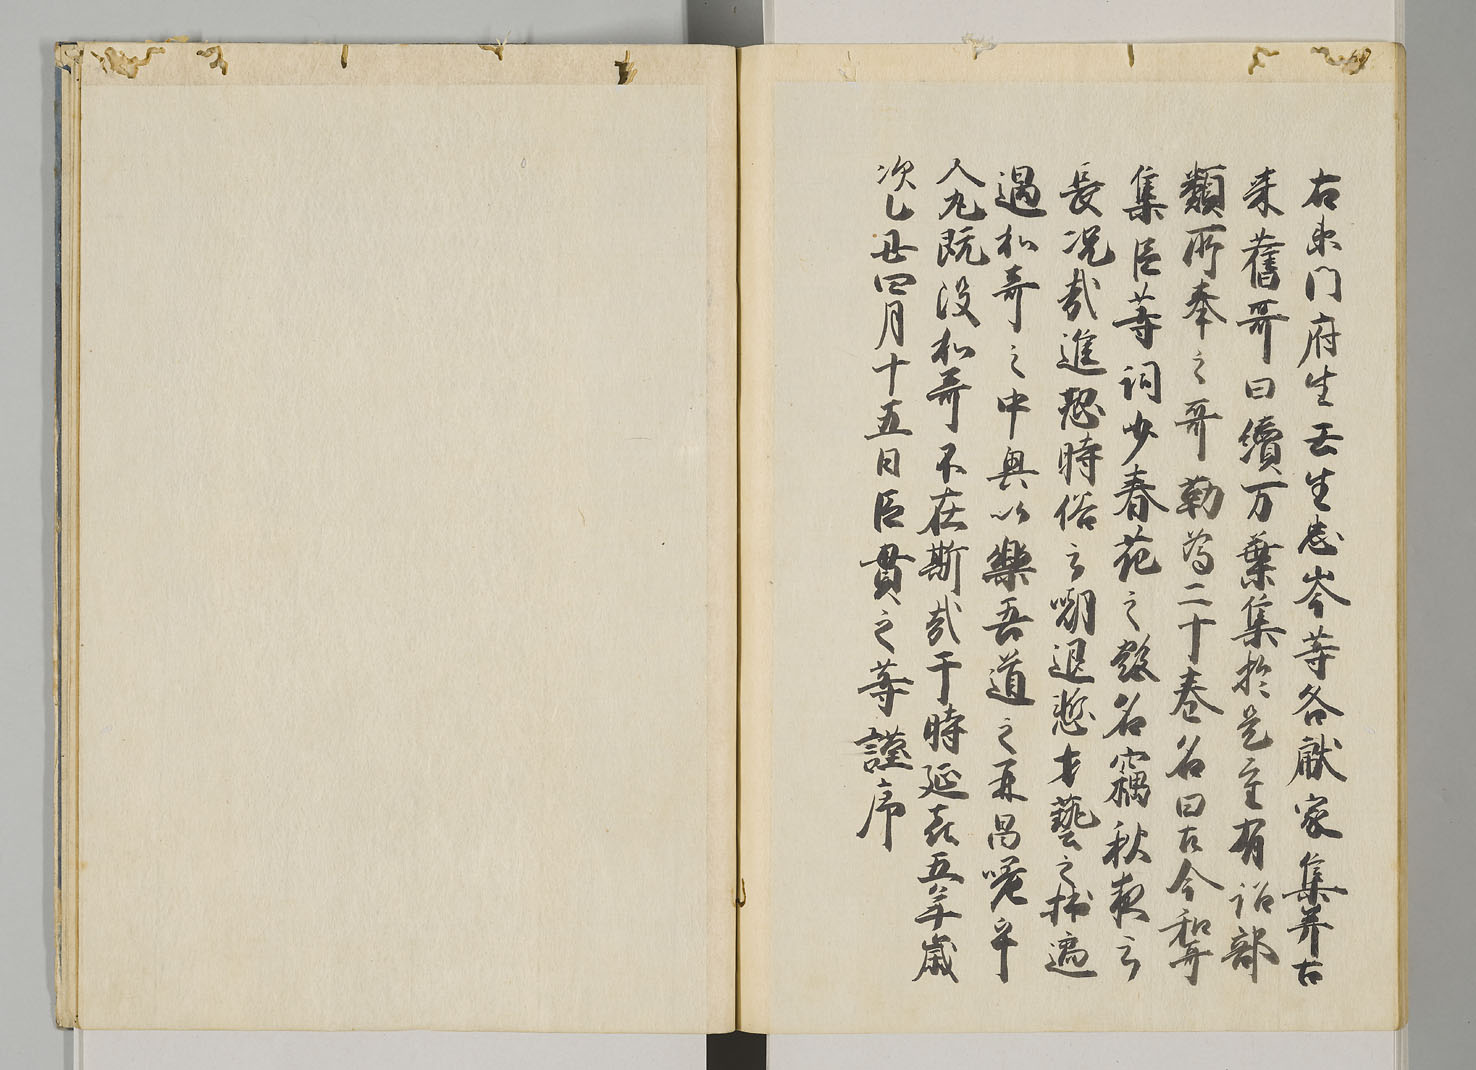 右衛門府生壬生忠岑等各献家集并古
来舊哥曰續万葉集於是重有詔部
類所奉之哥勒為二十巻名曰古今和哥
集臣等詞少春花之艶名竊秋夜之
長况哉進恐時俗之嘲退慙才藝之拙適
遇和哥之中興以樂吾道之再昌嗟乎
人丸既没和哥不在斯哉于時延喜五年歳
次乙丑四月十五日臣貫之等謹序